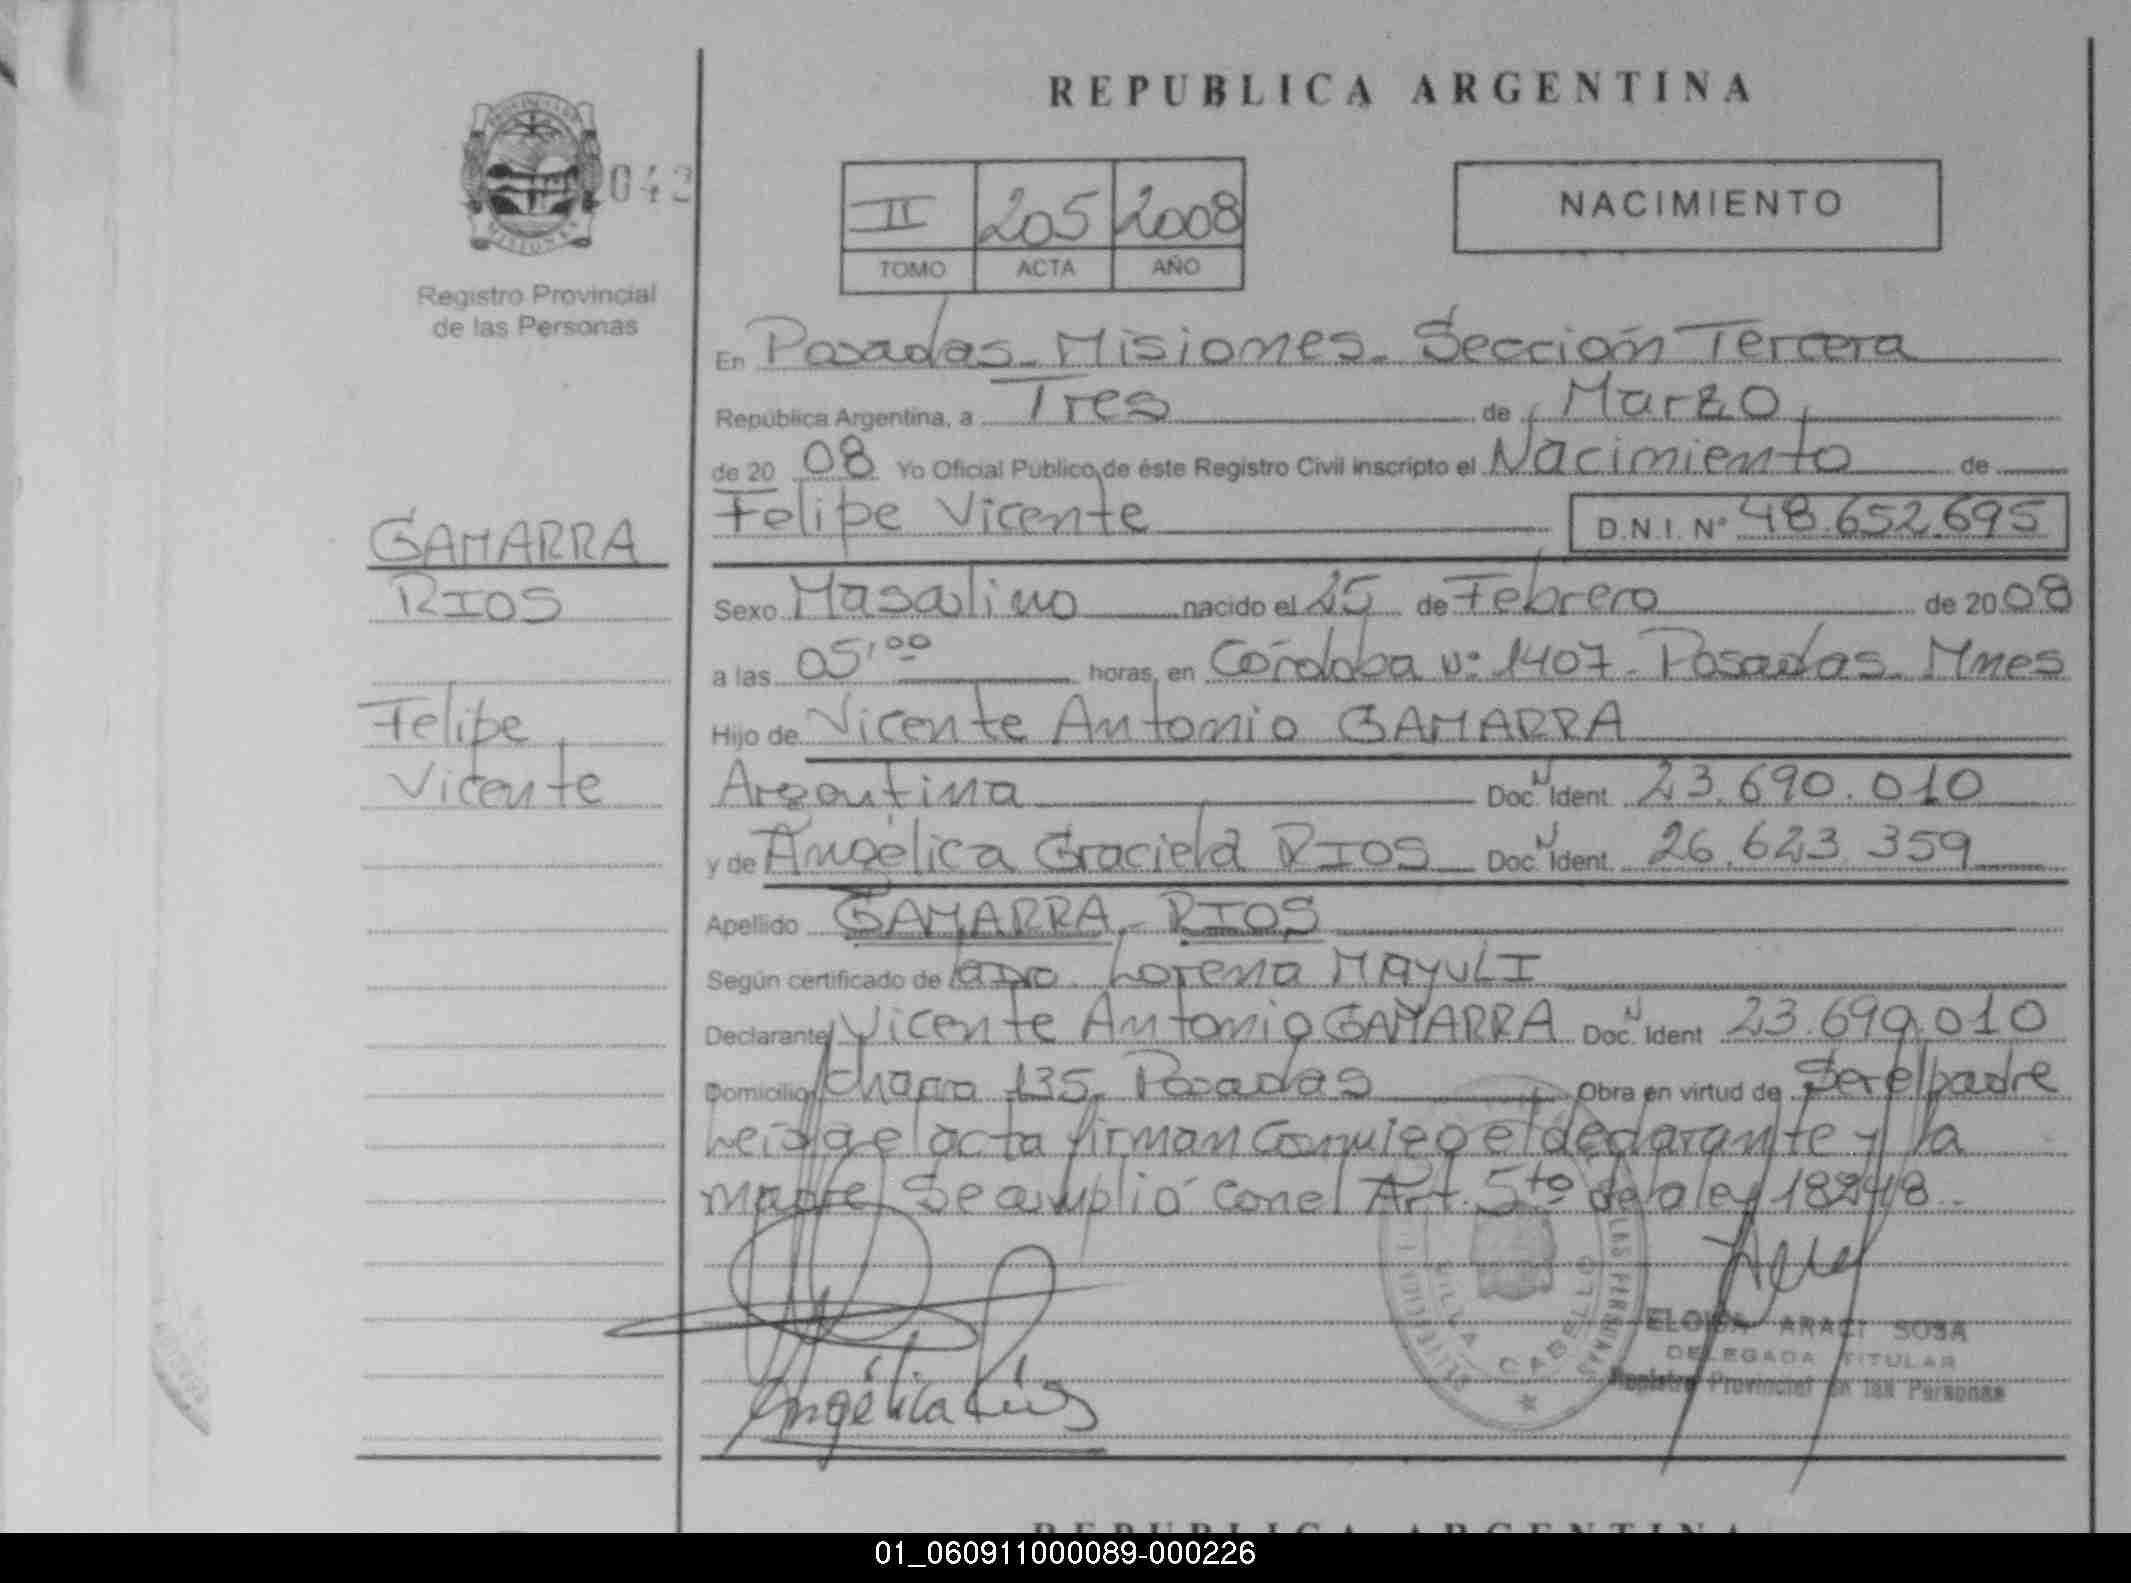 REPUBLICA ARGENTINA
043
II 205 2008
TOMO ACTA AÑO
NACIMIENTO
Registro Provincial
de las Personas
En Posadas - Misiones - Sección Tercera
República Argentina, a Tres de Marzo
de 20 08 Yo Oficial Público de éste Registro Civil inscripto el Nacimiento de
Felipe Vicente D.N.I. Nº 48.652.695
GAMARRA
RIOS
Felipe
Vicente
Sexo Masculino nacido el 25 de Febrero de 20 08
a las 05,00 horas, en Córdoba Nº 1407 - Posadas - Mnes
Hijo de Vicente Antonio GAMARRA
Argentina Doc. N Ident. 23.690.010
y de Angélica Graciela RIOS Doc. N Ident. 26.623.359
Apellido GAMARRA - RIOS
Según certificado de Lorena MAYULI
Declarante Vicente Antonio GAMARRA Doc. N Ident 23.690.010
Domicilio Chacra 135, Posadas Obra en virtud de Ser el padre
Leída el acta firman conmigo el declarante y la
madre Se cumplió con el Art. 5to de la ley 18248
Angélica Ríos
SILVA CABELLO
LAS PERSONAS
ELOISA ARACI SOSA
DELEGADA TITULAR
Registro Provincial de las Personas
REPUBLICA ARGENTINA
01_060911000089-000226